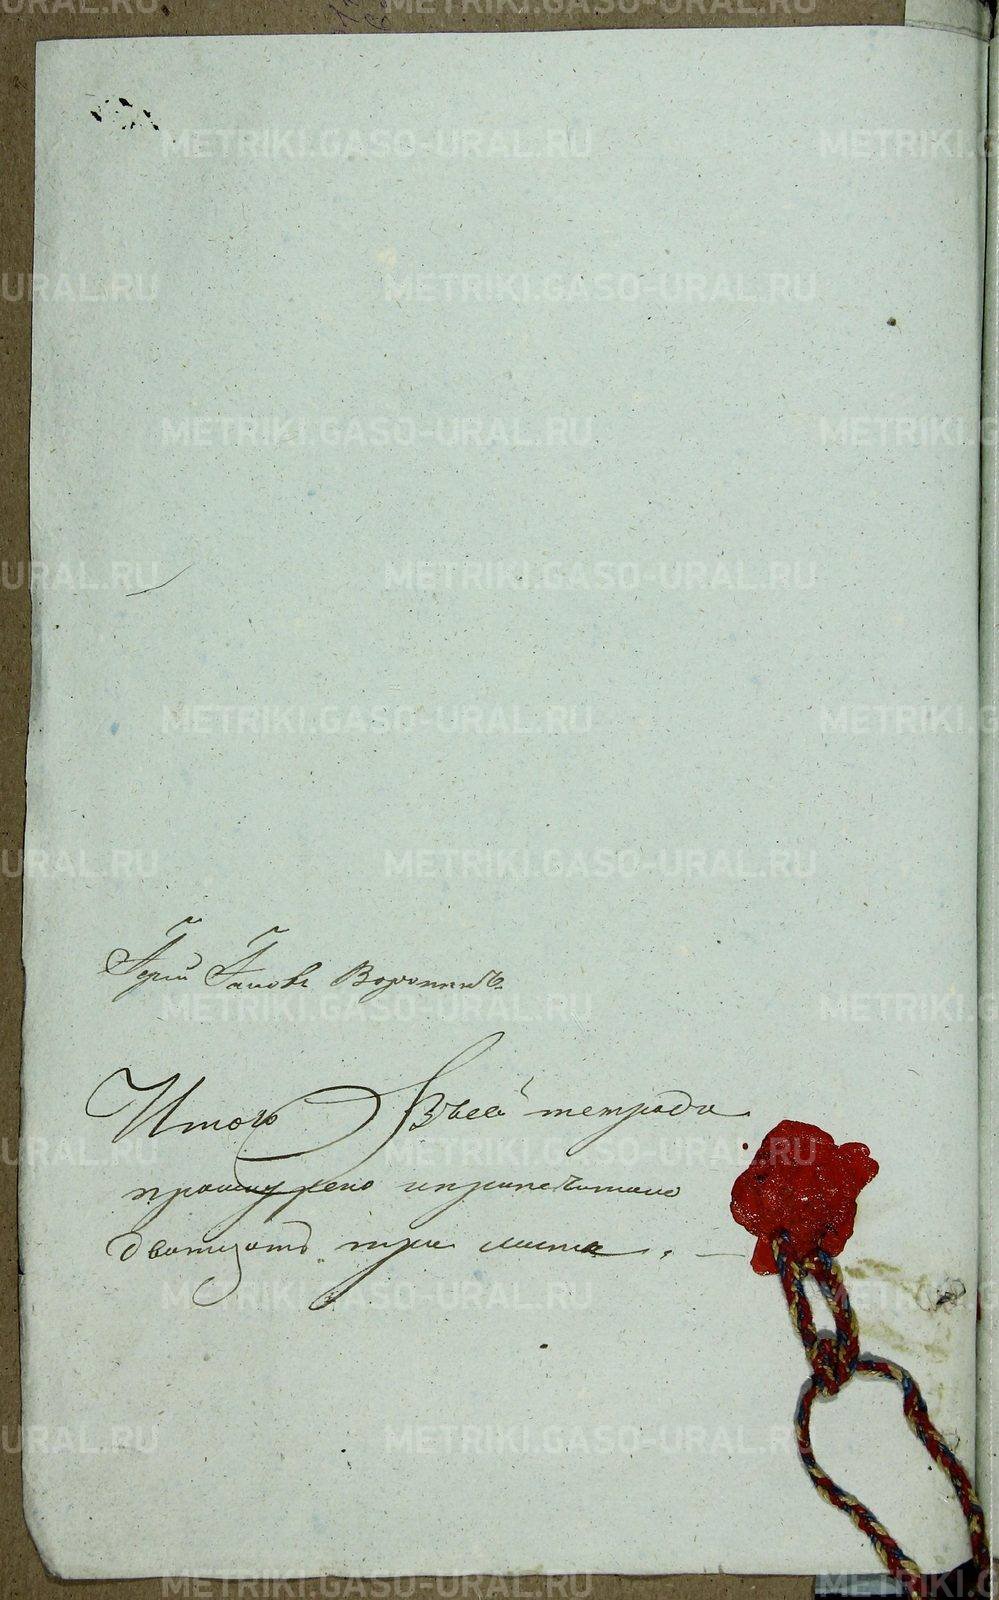 Іерей Іаковъ Воронинъ.
Итого Въсей тетради
прошнурено иприпечатано
дватцать три листа. —
METRIKI.GASO-URAL.RU